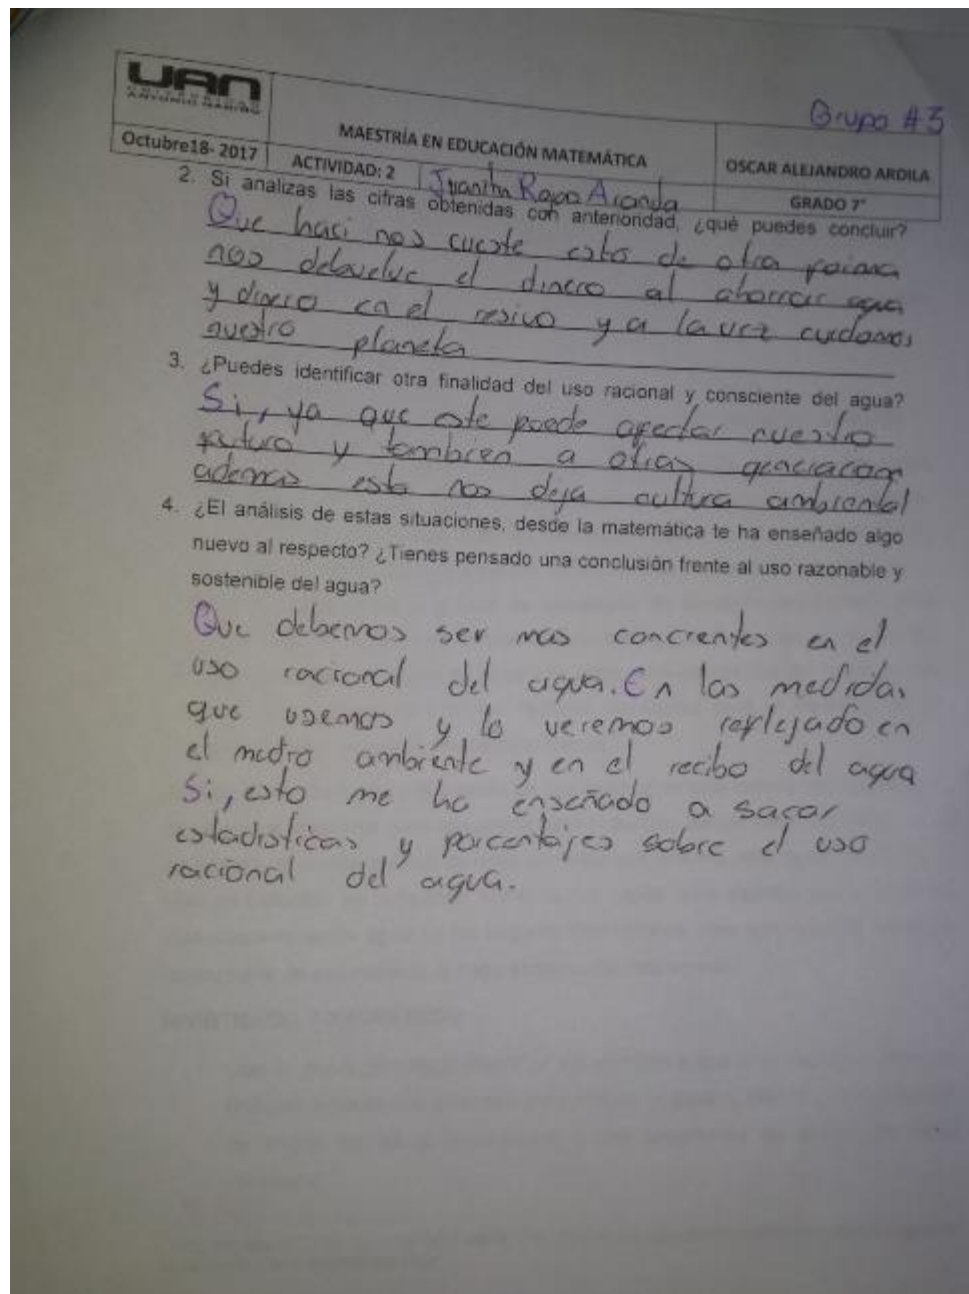 UAN
UNIVERSIDAD
ANTONIO NARIÑO
Grupo #3
MAESTRÍA EN EDUCACIÓN MATEMÁTICA
OSCAR ALEJANDRO ARDILA
Octubre18- 2017
ACTIVIDAD: 2
Juanita Rojas Aranda
GRADO 7°
2. Si analizas las cifras obtenidas con anterioridad, ¿qué puedes concluir?
Que haci nos cueste esto de otra
nos debuelve el dinero al ahorrar agua
y dinero en el resivo y a la vez cuidamos
nuestro planeta
3. ¿Puedes identificar otra finalidad del uso racional y consciente del agua?
Si, ya que este puede afectar nuestro
futuro y tambien a otras
ademas esto nos deja cultura ambiental
4. ¿El análisis de estas situaciones, desde la matemática te ha enseñado algo
nuevo al respecto? ¿Tienes pensado una conclusión frente al uso razonable y
sostenible del agua?
Que debemos ser mas concientes en el
uso racional del agua. En las medidas
que usemos y lo veremos reflejado en
el medio ambiente y en el recibo del agua
Si, esto me ha enseñado a sacar
estadisticas y porcentajes sobre el uso
racional del agua.